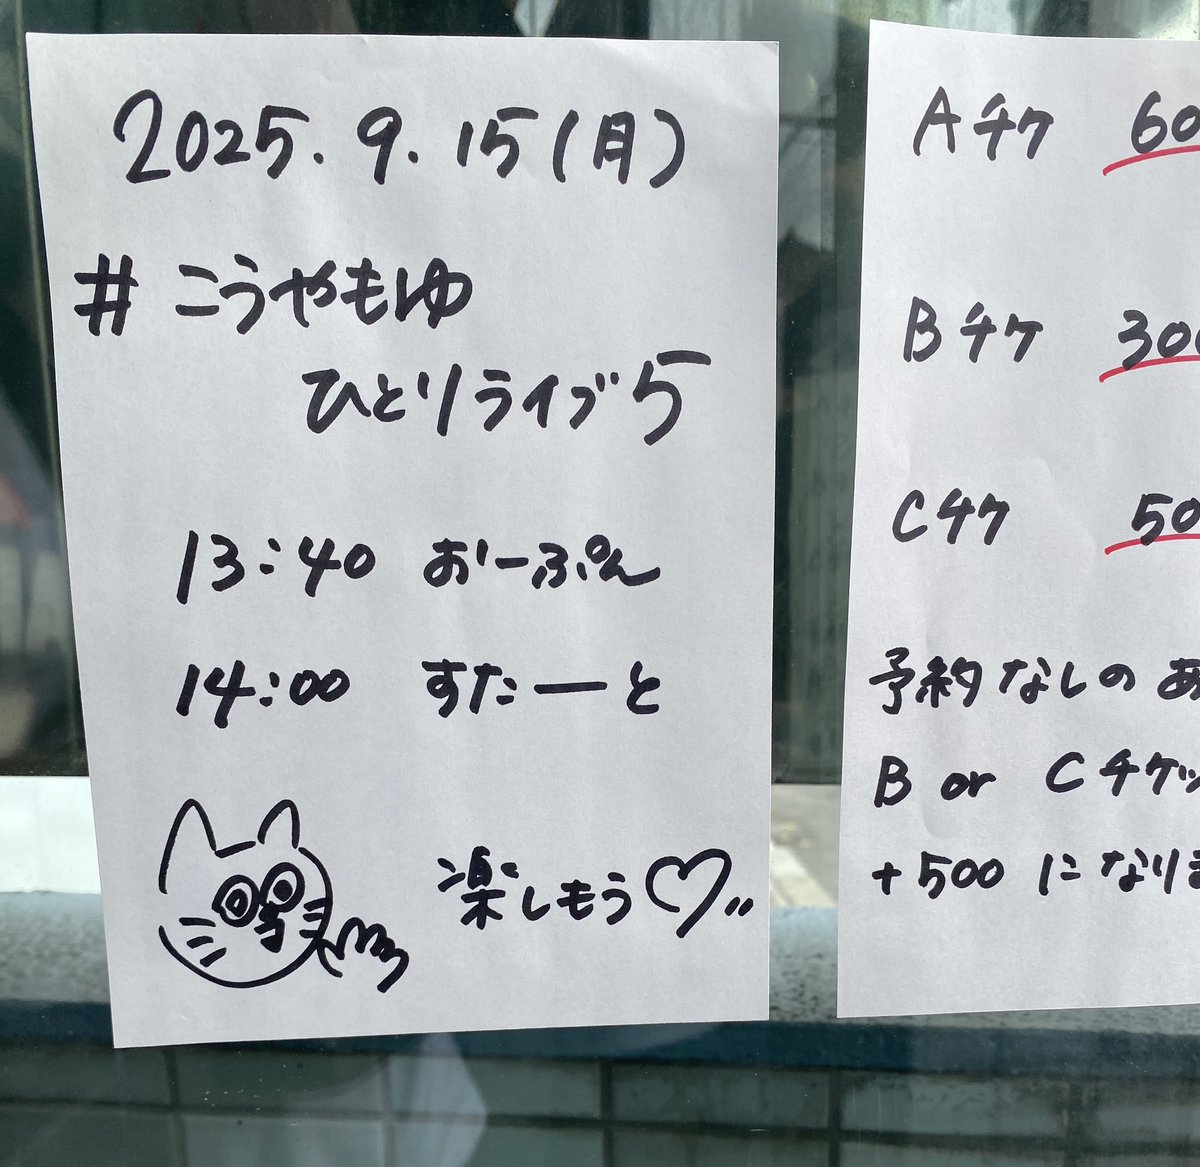 2025.9.15(月)
#こうやもゆ
ひとりライブ5
13:40 おーぷん
14:00 すたーと
楽しもう♡〃
Aチケ 60
Bチケ 300
Cチケ 50
予約なしのあ
B or Cチケッ
+500になりま